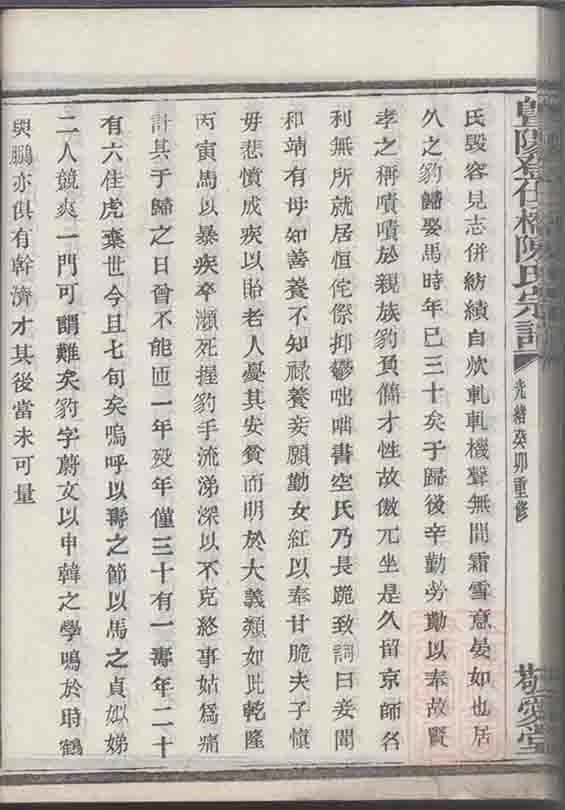 暨陽登仕橋陳氏宗譜
光緒癸卯重修
敬愛堂
氏毀容見志併紡績自炊軋軋機聲無間霜雪意晏如也居
久之豹歸娶馬時年已三十矣于歸後辛勤勞勩以奉故賢
孝之稱嘖嘖於親族豹負儁才性故傲兀坐是久留京師名
利無所就居恒侘傺抑鬱咄咄書空氏乃長跪致詞曰妾聞
和靖有母如善養不知祿養妾願勤女紅以奉甘脆夫子慎
毋悲憤成疾以貽老人憂其安貧而明於大義類如此乾隆
丙寅馬以暴疾卒瀕死握豹手流涕深以不克終事姑爲痛
計其于歸之日曾不能匝一年歿年僅三十有一壽年二十
有六佳虎棄世今且七旬矣嗚呼以壽之節以馬之貞姒娣
二人競爽一門可謂難矣豹字蔚文以申韓之學鳴於時鶴
與鵬亦俱有幹濟才其後當未可量